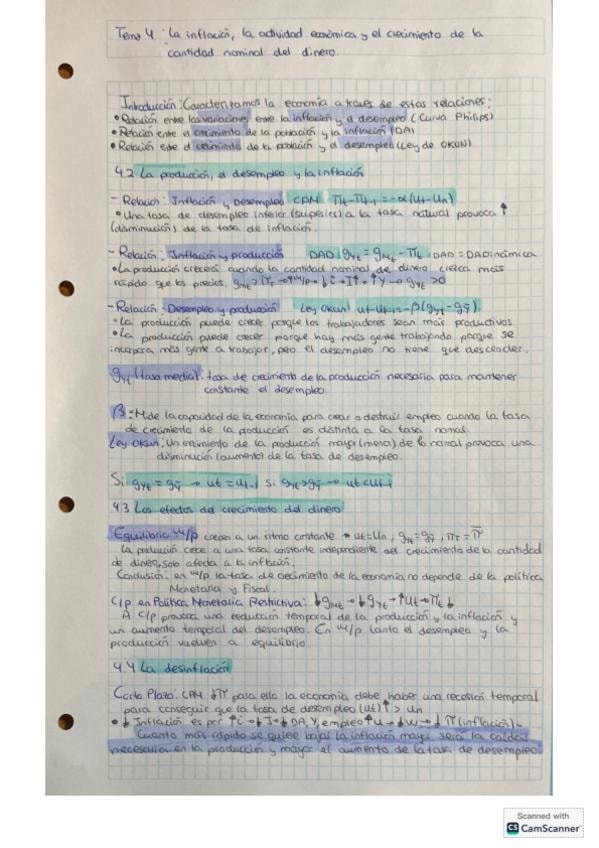 Tema 4: La inflación, la actividad económica y el crecimiento de la
cantidad nominal del dinero.
Introducción: Caracterizamos la economía a traves de estas relaciones:
• Relación entre las variaciones entre la inflación y el desempleo (Curva Philips)
• Relación entre el crecimiento de la población y la inflación (DA)
• Relación entre el crecimiento de la población y el desempleo (Ley de OKUN)
4.2 La producción, el desempleo y la inflación
- Relación: Inflación y Desempleo CPM πt-πt-1=-α(ut-un)
• Una tasa de desempleo inferior (superior) a la tasa natural provoca ↑
(disminución) de la tasa de inflación.
- Relación: Inflación y producción DAD: gyt=gmt-πt; DAD=DADinámica
• La producción crecerá cuando la cantidad nominal de dinero crezca más
rápido que los precios. gmt>πt→↑M/p→↓i→I↑→↑Y→gyt>0
- Relación: Desempleo y producción Ley Okun: ut-ut-1=-β(gyt-gȳ)
• La producción puede crecer porque los trabajadores sean más productivos
• La producción puede crecer porque hay más gente trabajando porque se
incorpora más gente a trabajar, pero el desempleo no tiene que descender.
gyt (tasa media): tasa de crecimiento de la producción necesaria para mantener
constante el desempleo.
β: Mide la capacidad de la economía para crear o destruir empleo cuando la tasa
de crecimiento de la producción es distinta a la tasa normal.
Ley Okun: Un crecimiento de la producción mayor (menor) de lo normal provoca una
disminución (aumento) de la tasa de desempleo.
Si gyt=gȳ → ut=ut-1 si gyt>gȳ → ut<ut-1
4.3 Los efectos del crecimiento del dinero
Equilibrio M/p crecen a un ritmo constante → ut=un, gyt=gȳ, πt=π̄
La producción crece a una tasa constante independiente del crecimiento de la cantidad
de dinero, solo afecta a la inflación.
Conclusión: en M/p la tasa de crecimiento de la economía no depende de la política
Monetaria y Fiscal.
C/p en Política Monetaria Restrictiva: ↓gmt→↓gyt→↑ut→πt↓
A C/p provoca una reducción temporal de la producción y la inflación y
un aumento temporal del desempleo. En M/p tanto el desempleo y la
producción vuelven a equilibrio.
4.4 La desinflación
Corto Plazo: CPM ↓π para ello la economía debe haber una recesión temporal
para conseguir que la tasa de desempleo (ut)↑ > un
• ↓ Inflación es por ↑i→↓I→↓DA, Y, empleo↑u→↓W→↓π(inflación).
Cuanto más rápido se quiere bajar la inflación mayor será la caída
necesaria en la producción y mayor el aumento de la tasa de desempleo
Scanned with
CS CamScanner